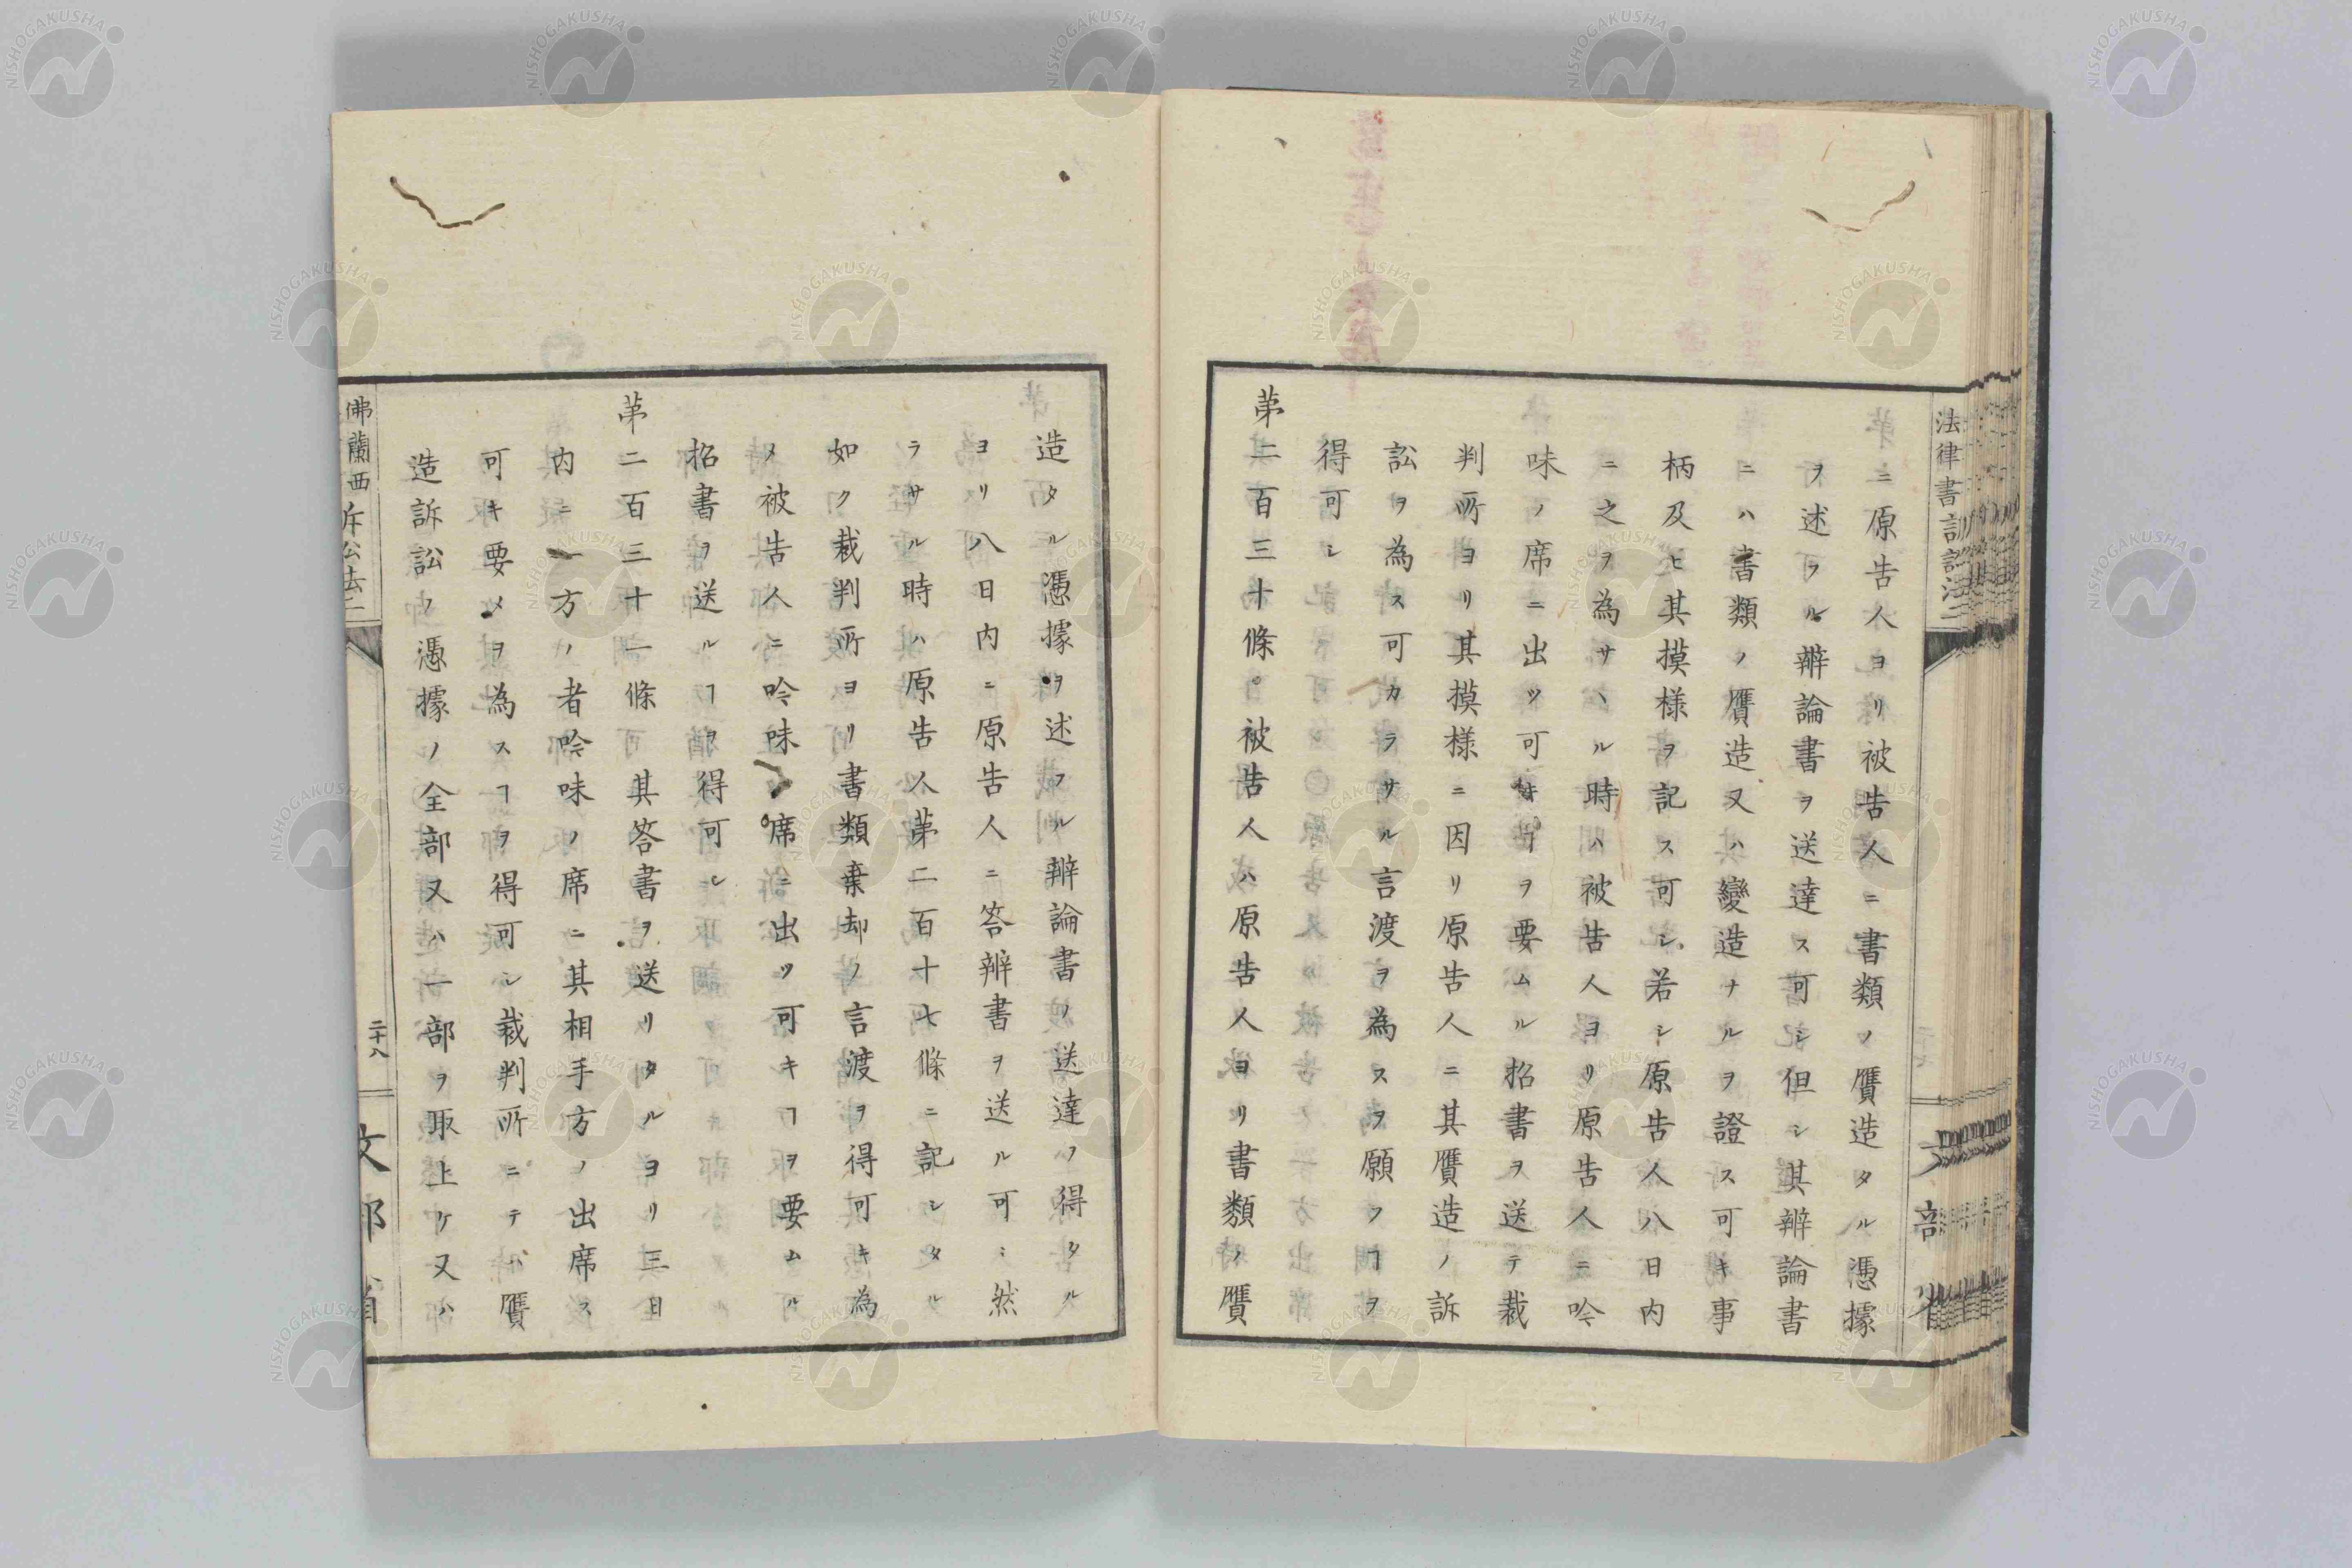 ニ原告人ヨリ被告人ニ書類ノ贋造タル憑據
ヲ述フル辨論書ヲ送達ス可シ但シ其辨論書
ニハ書類ノ贋造又ハ變造ナルヲ證ス可キ事
柄及ヒ其摸様ヲ記ス可シ若シ原告人八日内
ニ之ヲ為サヽル時ハ被告人ヨリ原告人ニ吟
味ノ席ニ出ツ可キヿヲ要ムル招書ヲ送テ裁
判所ヨリ其摸様ニ因リ原告人ニ其贋造ノ訴
訟ヲ為ス可カラサル言渡ヲ為スヲ願フヿヲ
得可シ
苐二百三十條。被告人ハ原告人ヨリ書類ノ贋
造タル憑據ヲ述フル辨論書ノ送達ヲ得タル
ヨリ八日内ニ原告人ニ答辨書ヲ送ル可シ然
ラサル時ハ原告人苐二百十七條ニ記シタル
如ク裁判所ヨリ書類棄却ノ言渡ヲ得可キ為
メ被告人ニ吟味ノ席ニ出ツ可キヿヲ要ムル
招書ヲ送ルヿヲ得可シ
苐二百三十一條 其答書ヲ送リタルヨリ三日
内ニ一方ノ者吟味ノ席ニ其相手方ノ出席ス
可キ要メヲ為スヿヲ得可シ裁判所ニテハ贋
造訴訟ノ憑據ノ全部又ハ一部ヲ取上ケ又ハ
佛蘭西訴訟法二
二十八
文部省